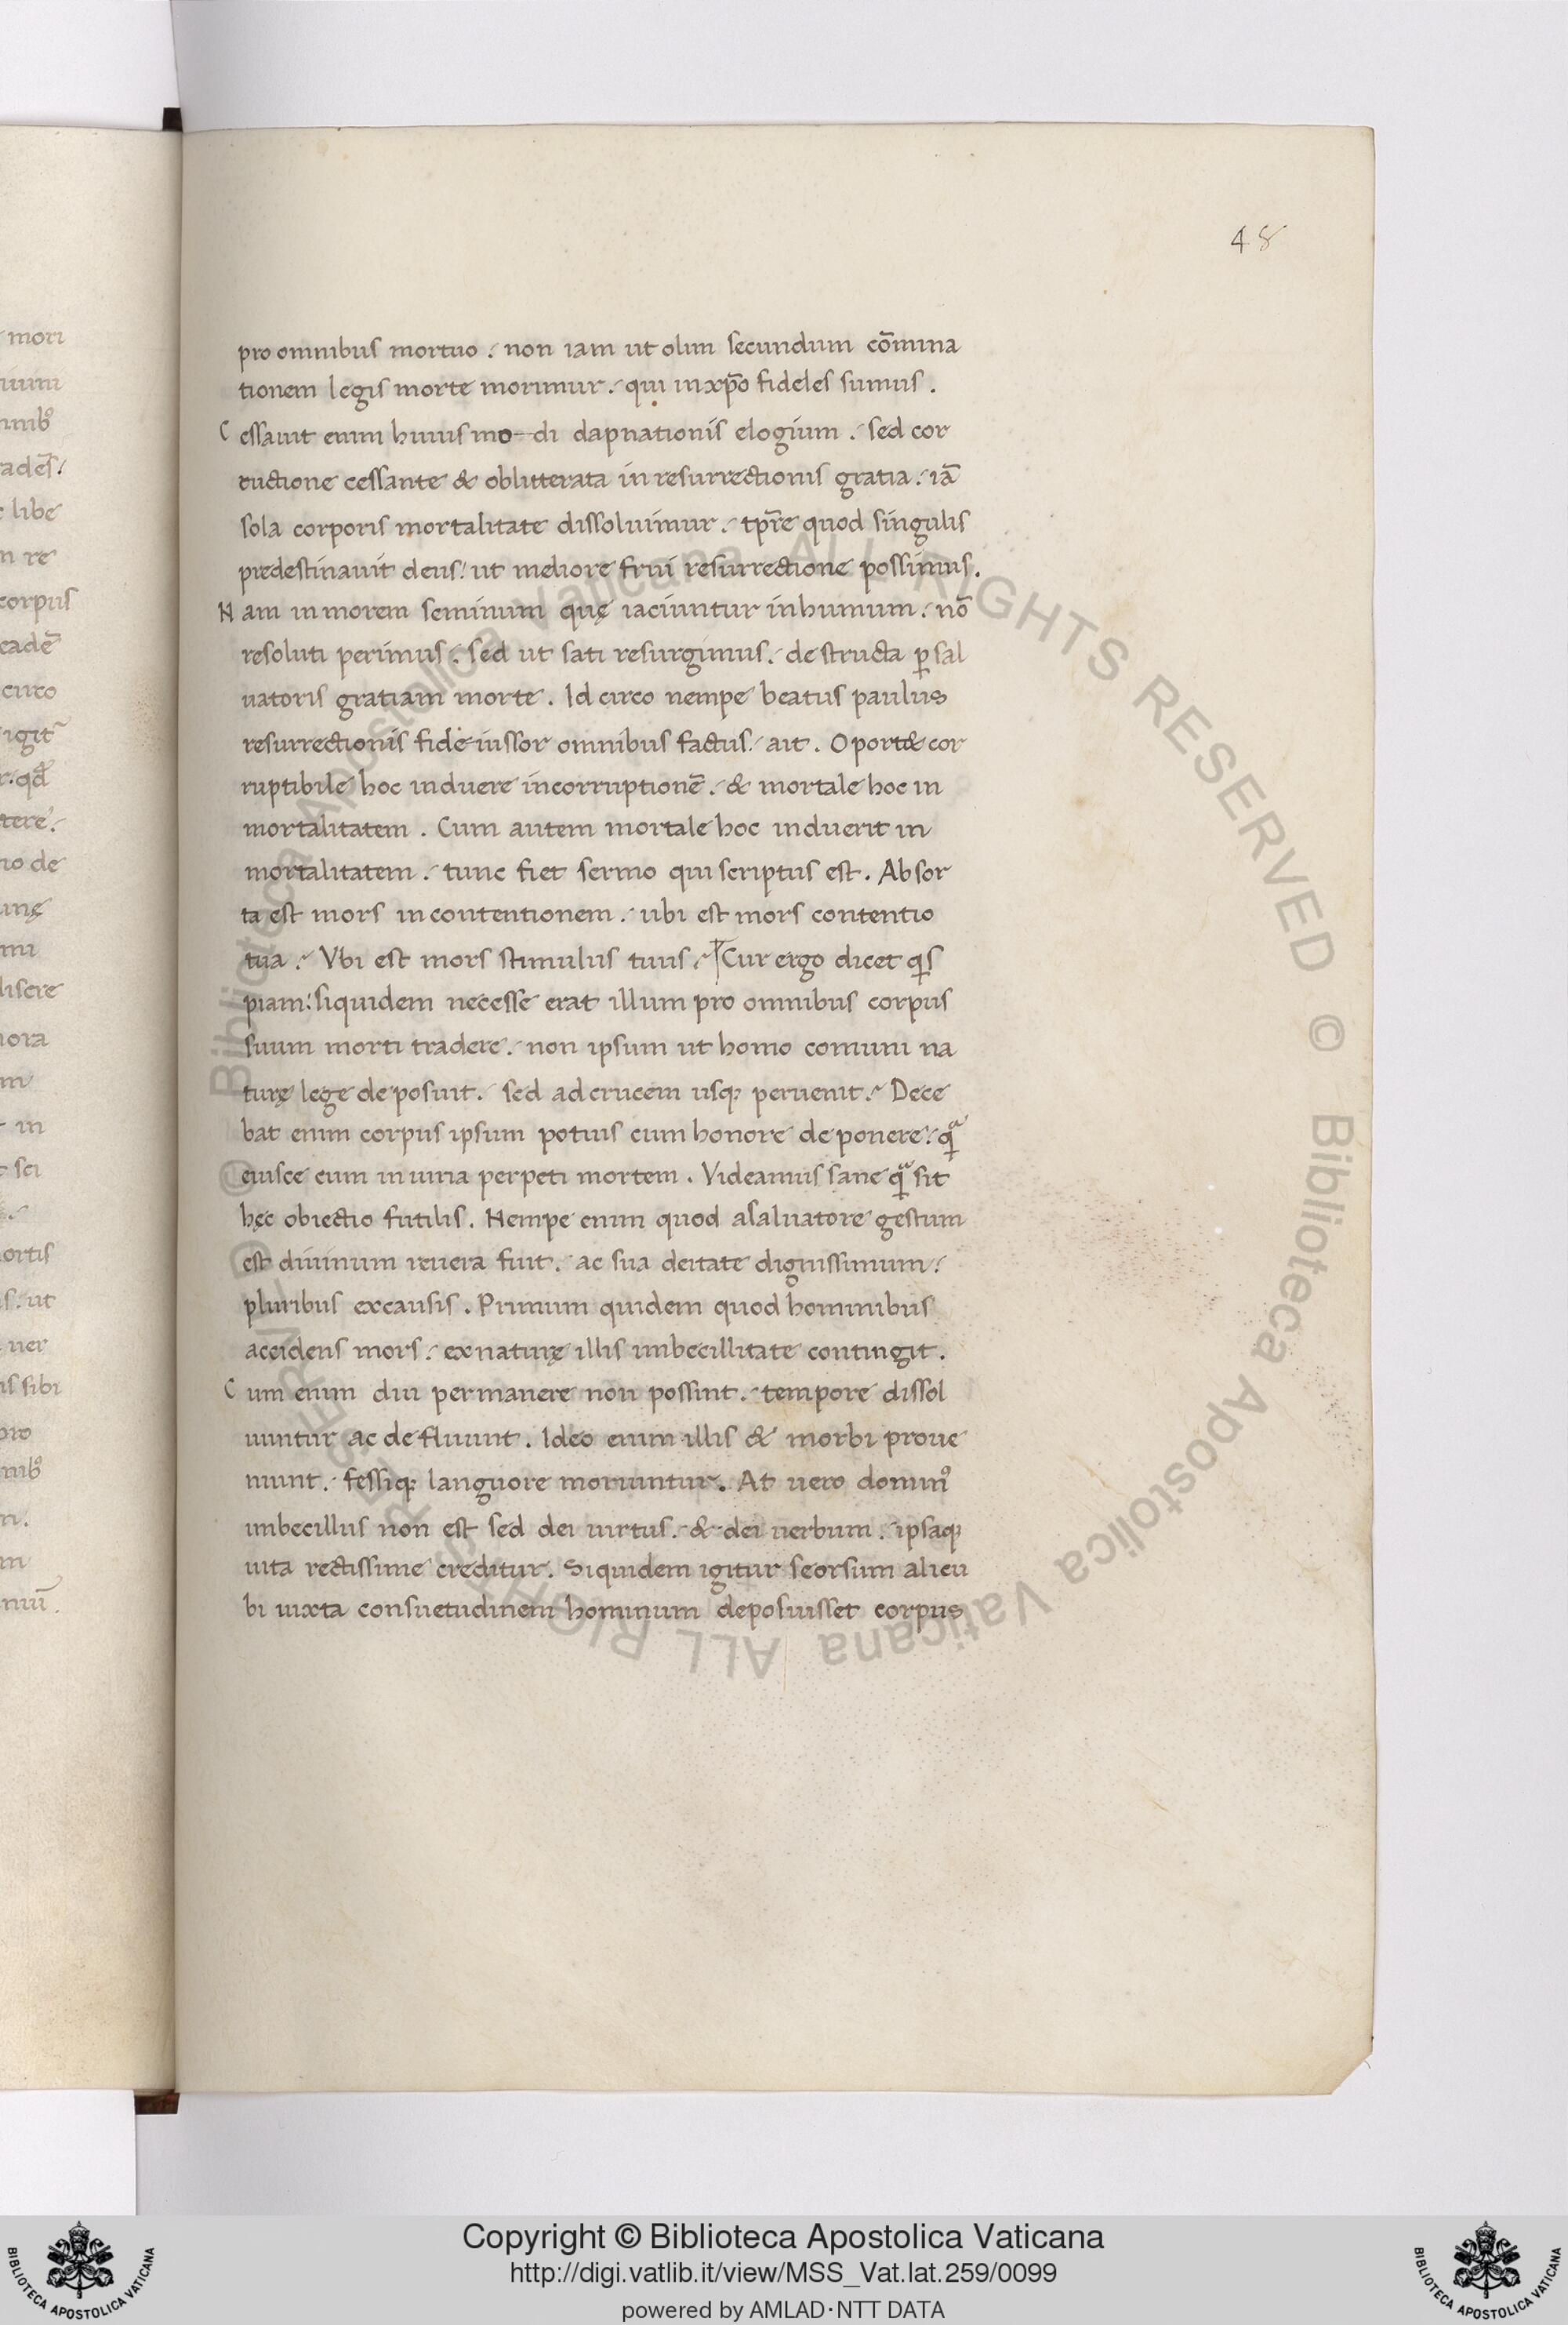 48
pro omnibus mortuo. non iam ut olim secundum cōmina
tionem legis morte morimur. qui in xp̄o fideles sumus.
Cessauit enim huius modi dapnationis elogium. sed cor
ructione cessante & oblitterata in resurrectionis gratia. iā
sola corporis mortalitate dissoluimur. tp̄re quod singulis
predestinauit deus. ut meliore frui resurrectione possimus.
Nam in morem seminum quę iaciuntur in humum. nō
resoluti perimus. sed ut sati resurgimus. destructa ꝑ sal
uatoris gratiam morte. Id circo nempe beatus paulus
resurrectionis fide iussor omnibus factus. ait. Oport& cor
ruptibile hoc induere incorruptionē. & mortale hoc in
mortalitatem. Cum autem mortale hoc induerit in
mortalitatem. tunc fiet sermo qui scriptus est. Absor
ta est mors in contentionem. ubi est mors contentio
tua. Vbi est mors stimulus tuus. Cur ergo dicet qͥs
piam. siquidem necesse erat illum pro omnibus corpus
suum morti tradere. non ipsum ut homo comuni na
turę lege deposuit. sed ad crucem usq; peruenit. Dece
bat enim corpus ipsum potius cum honore deponere. qͣ
eiusce eum iniuria perpeti mortem. Videamus sane qͣ sit
hęc obiectio futilis. Nempe enim quod a saluatore gestum
est diuinum reuera fuit. ac sua deitate dignissimum.
pluribus ex causis. Primum quidem quod hominibus
accidens mors. ex naturę illis imbecillitate contingit.
Cum enim diu permanere non possint. tempore dissol
uuntur ac defluunt. Ideo enim illis & morbi proue
niunt. fessiq; languore moriuntur. At uero dominꝰ
imbecillus non est sed dei uirtus. & dei uerbum. ipsaq;
uita rectissime creditur. Siquidem igitur seorsum alicu
bi iuxta consuetudinem hominum deposuisset corpus
Copyright © Biblioteca Apostolica Vaticana
http://digi.vatlib.it/view/MSS_Vat.lat.259/0099
powered by AMLAD·NTT DATA